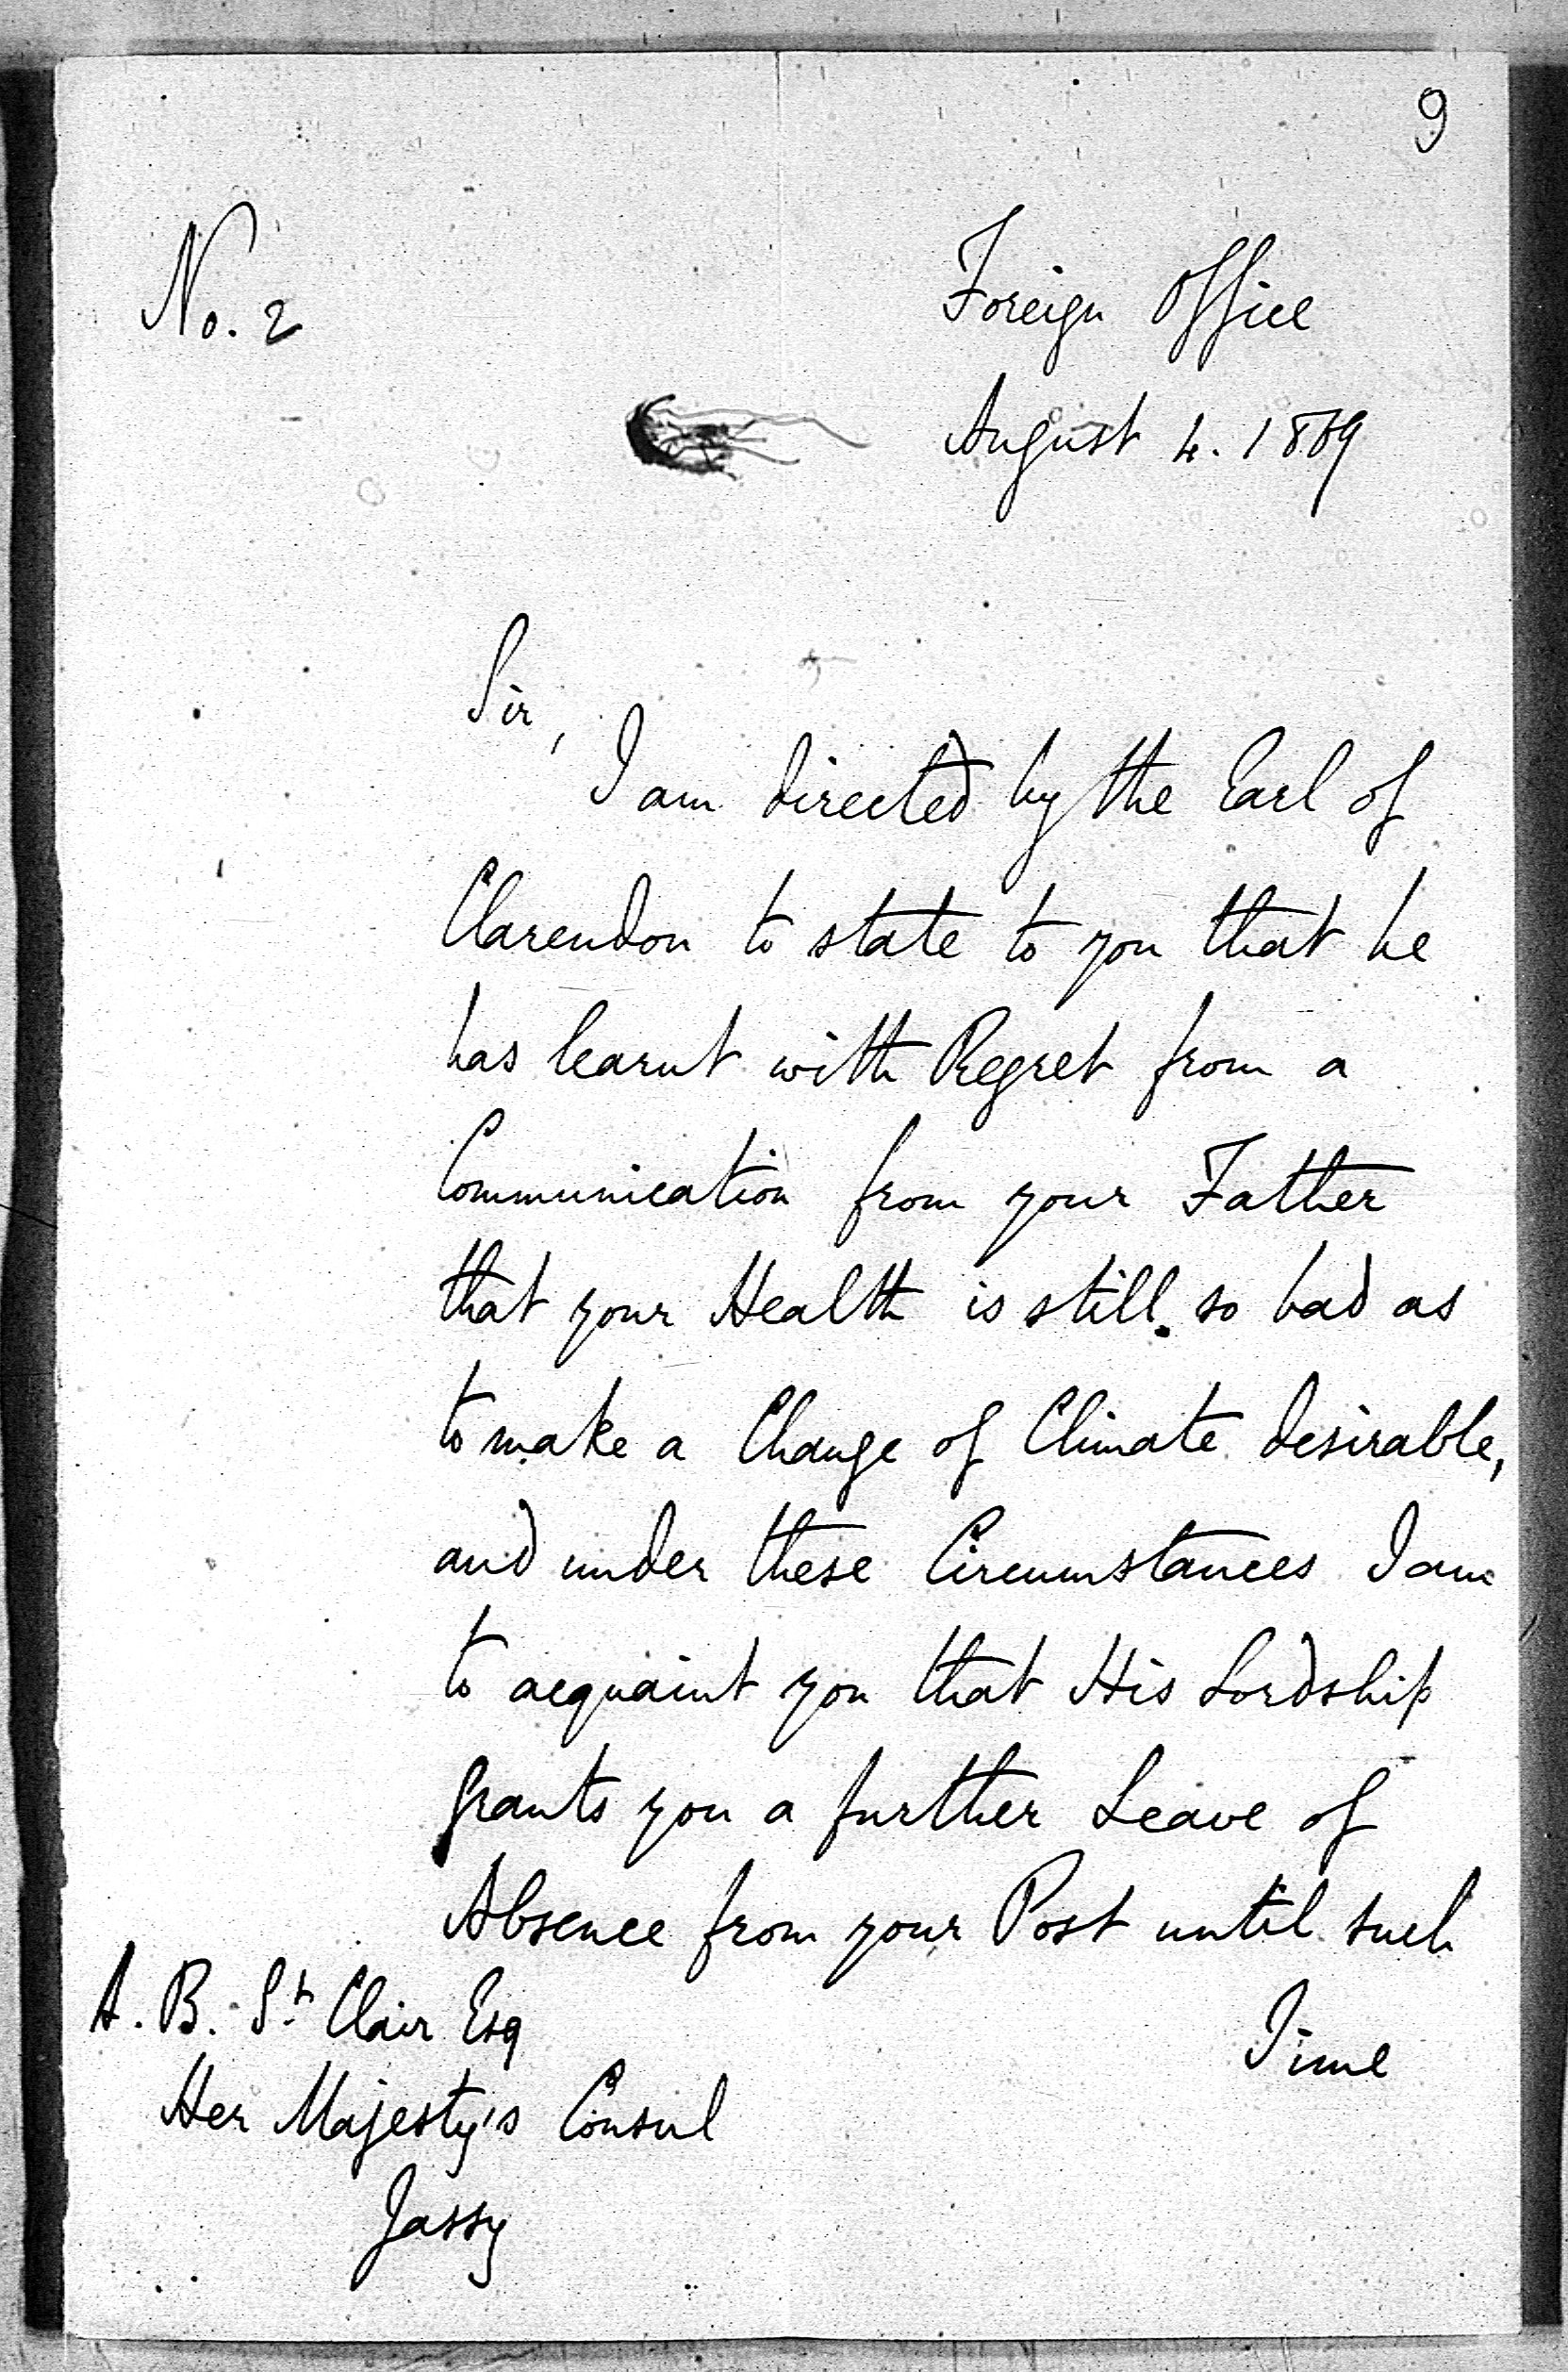 9
No. 2
Foreign Office
August 4. 1869
Sir,
I am directed by the Earl of
Clarendon to state to you that he
has learnt with Regret from a
Communication from your Father
that your Health is still so bad as
to make a Change of Climate desirable,
and under these Circumstances I am
to acquaint you that His Lordship
grants you a further Leave of
Absence from your Post until such
Time
A. B. St. Clair Esq
Her Majesty's Consul
Jassy